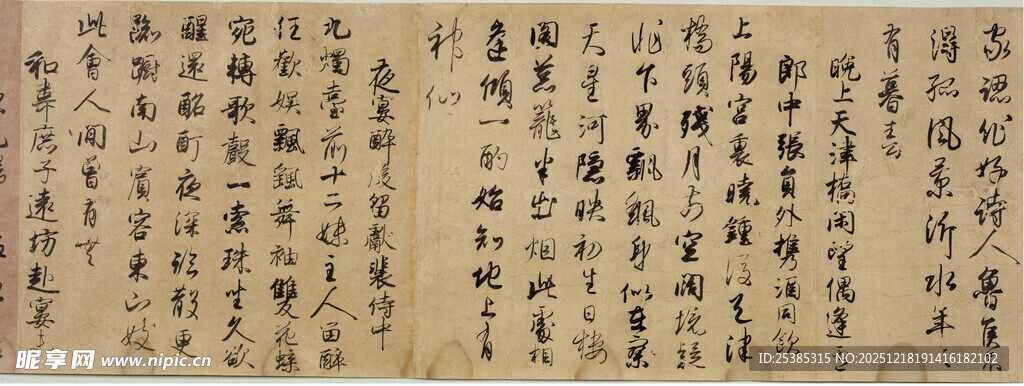 家認作好詩人魯
孤風景沂水年々
有暮春
晚上天津橋閑望偶逢盧
郎中張員外攜酒同飲
上陽宮裏曉鍾後天津
橋頭殘月前空闊境疑
非下界飄颻身似在寥
天星河隱映初生日樓
閣葱籠半出烟此處相
逢傾一酌始知地上有
神仙
夜宴醉後留獻裴侍中
九燭臺前十二姝主人留醉
任歡娛飄颻舞袖雙飛蝶
宛轉歌聲一索珠坐久欲
醒還酩酊夜深臨散更
踟躕南山賓客東山妓
此會人間曾有無
和韋庶子遠坊赴宴
昵享网 www.nipic.cn
ID:25385315 NO:20251218191416182102